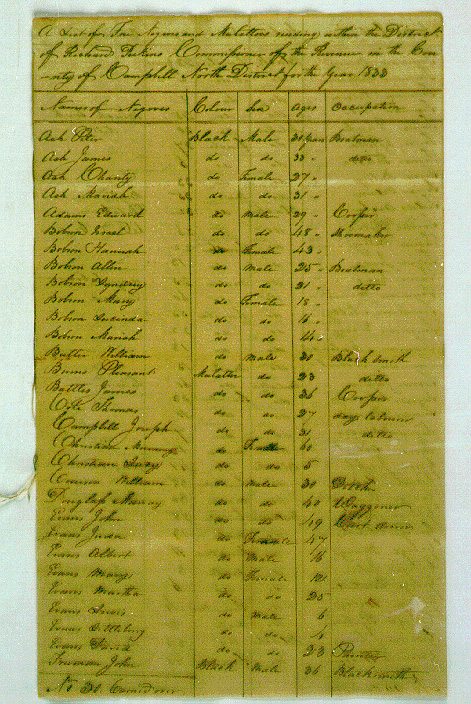 A List of Free Negroes and Mulattoes residing within the District
of Richard Perkins Commissioner of the Revenue in the Cou-
nty of Campbell North District for the Year 1833
Names of Negroes Colour Sex ages Occupation
Ash Pete Black Male 30 years Boatman
Ash James do do 33 ditto
Ash Charity do Female 27
Ash Mariah do do 31
Adams Edward do Male 29 Cooper
Bobson Israel do do 48 Shoemaker
Bobson Hannah do Female 43
Bobson Allen do Male 25 Boatman
Bobson do do 21 ditto
Bobson Mary do Female 18
Bobson Lucinda do do 16
Bobson Mariah do do 14
Butler William do Male 30 Blacksmith
Burns Pleasant Mulatto do 23 ditto
Battles James do do 36 Cooper
Cole Thomas do do 27 day labourer
Campbell Joseph do do 31 ditto
Christian do Female 60
Christian Lucy do do 5
William do Male 30 Ditch
Douglass Murray do do 40 Waggoner
Evans John do do 49
Evans do Female 47
Evans Albert do Male 16
Evans Mary do Female
Evans Martha do do 20
Evans Lewis do Male 6
Evans do do 4
Evans do do 23
Freeman John Black Male 36 Blacksmith
No 30